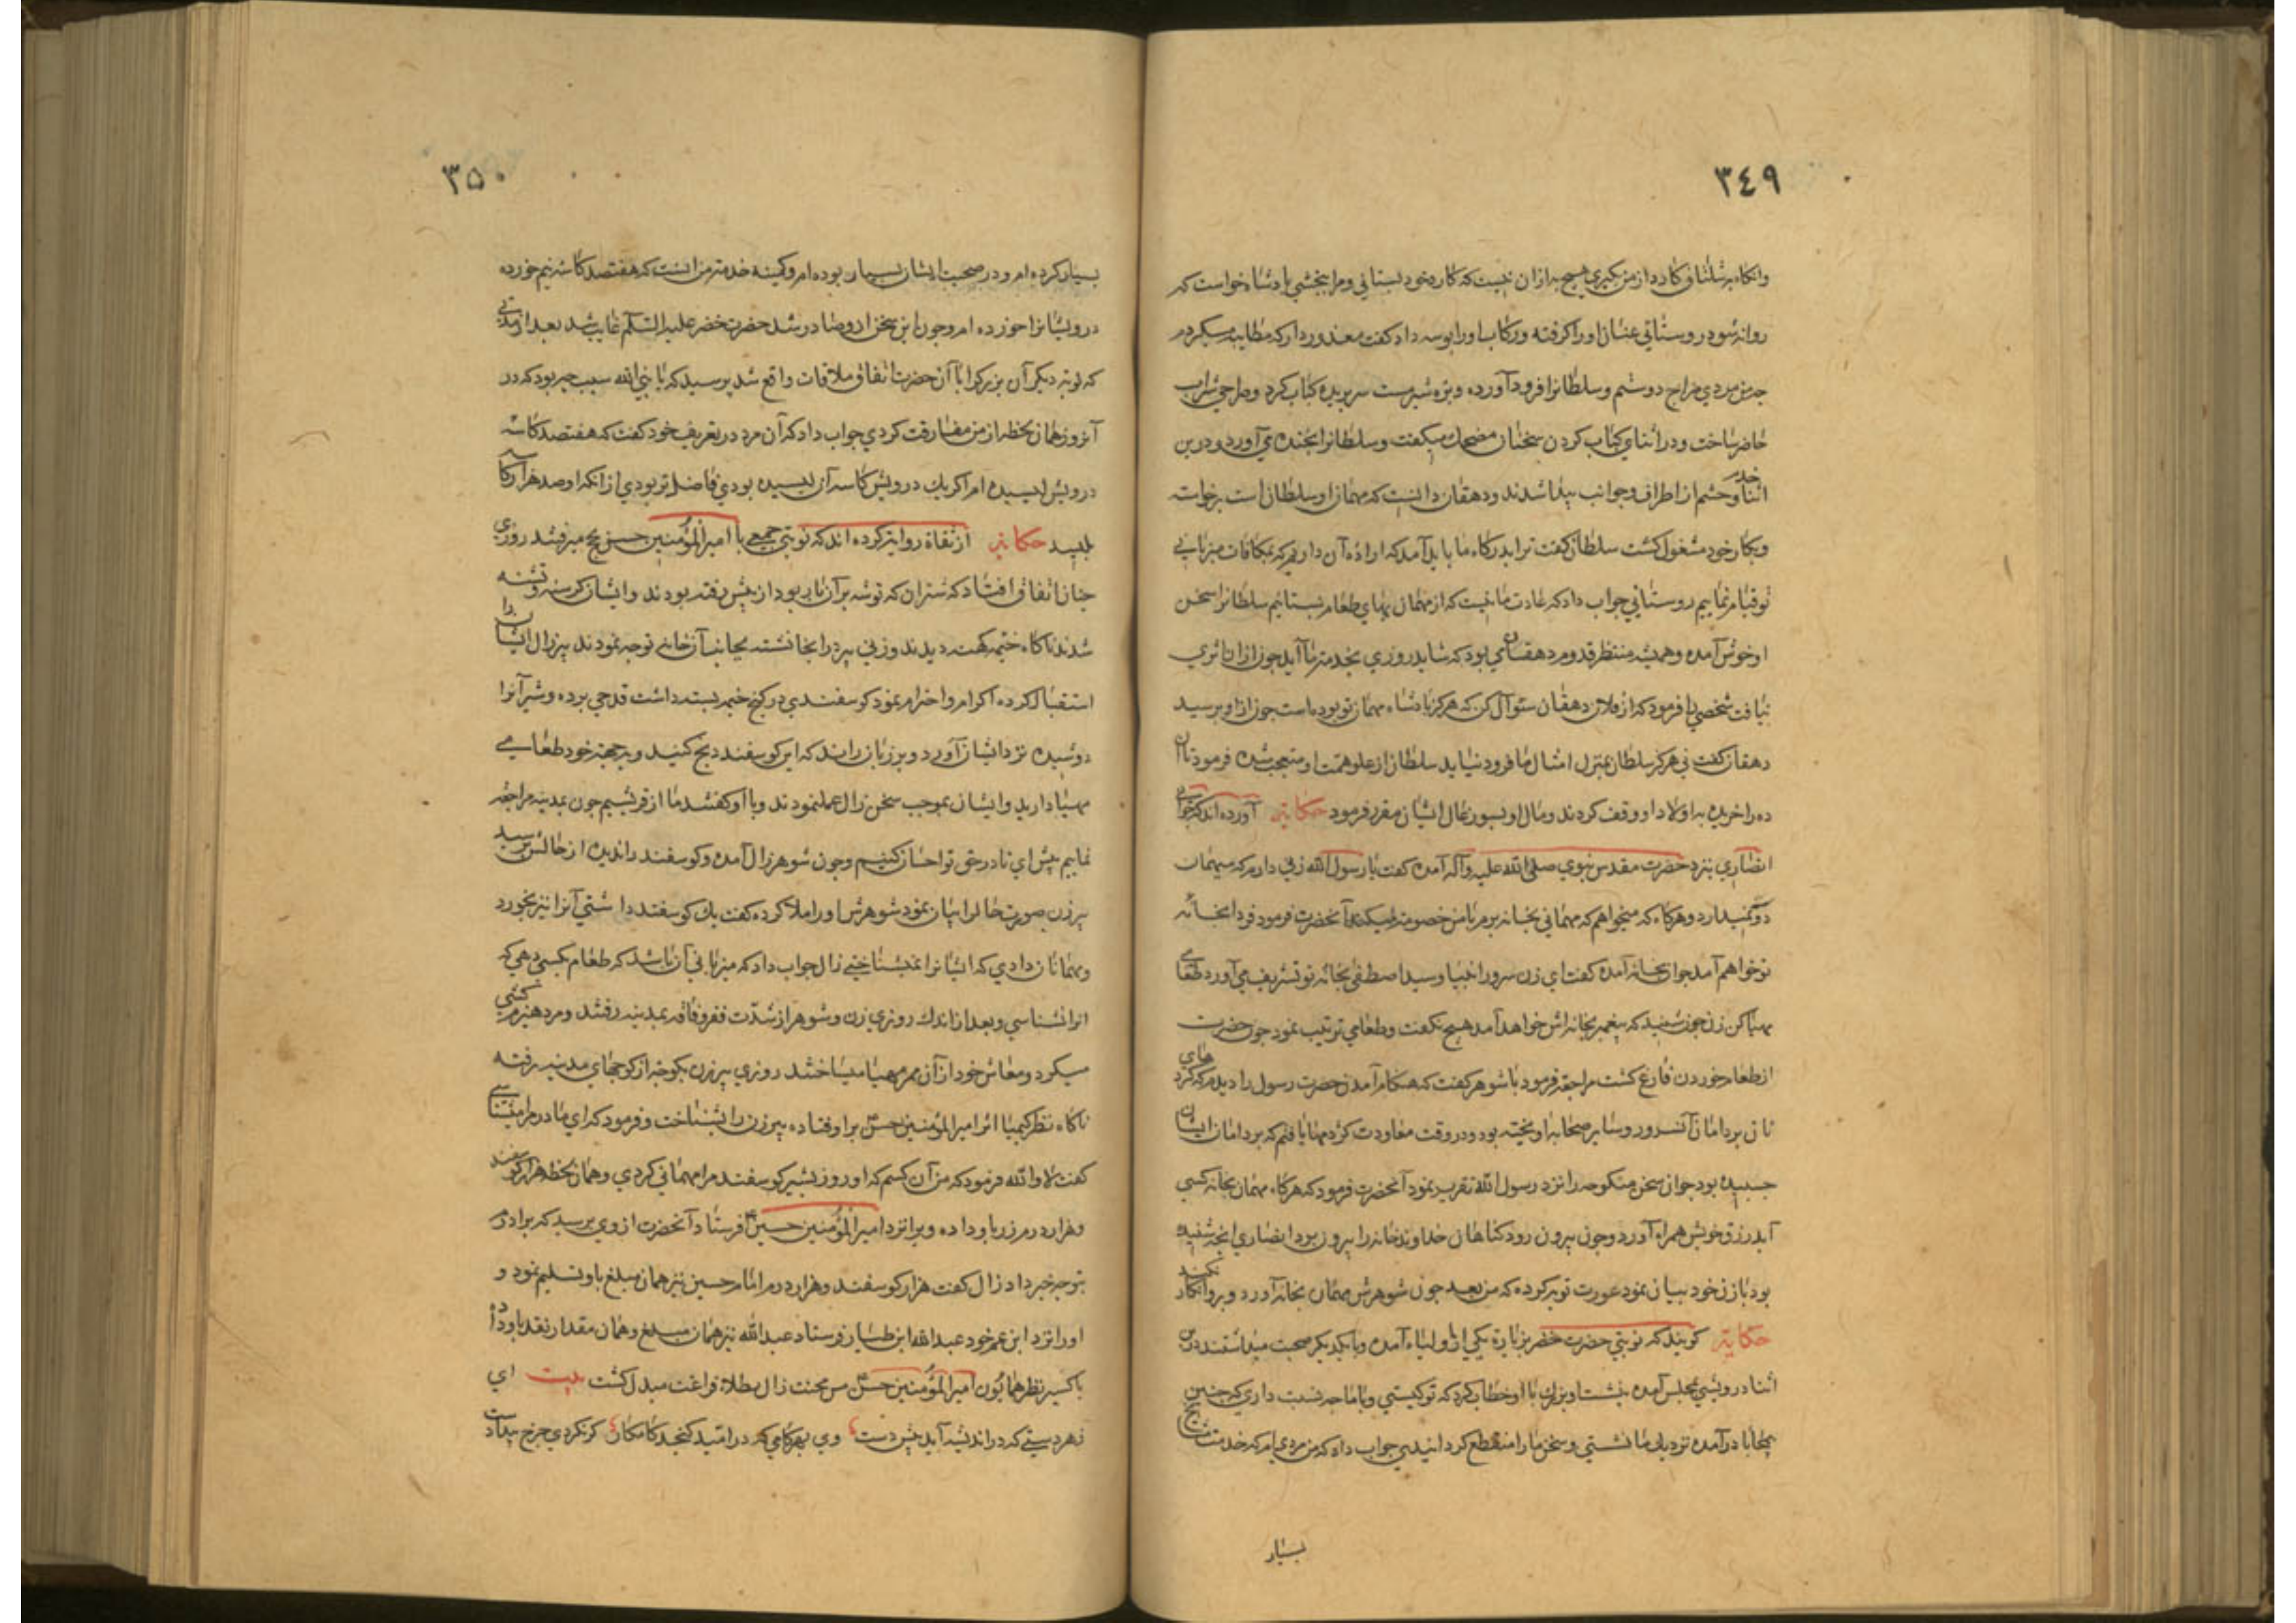 ٣٤٩
وانگاه بشلتاق کارد از من بگیری هیچ به ازان نیست که کارد خود بستانی و مرا ببخشی پادشاه خواست که
روانه شود روستائی عنان او را گرفته و رکاب او را بوسه داد گفت معذور دار که مطایبه میکردم
چه من مردی مزاح دوستم و سلطانرا فرود آورده و بره شیرمست سر بریده کباب کرد و صراحی شراب
حاضر ساخت و در اثنای کباب کردن سخنان مضحک میگفت و سلطانرا بخنده می آورد و درین
اثنا خدم و حشم از اطراف و جوانب پیدا شدند و دهقان دانست که مهمان او سلطان است برخواسته
و بکار خود مشغول گشت سلطان گفت ترا بدرگاه ما باید آمد که اراده آن داریم که بمکافات میزبانی
تو قیام نماییم روستائی جواب داد که عادت ما نیست که از مهمان بهای طعام بستانیم سلطانرا سخن
او خوش آمده و همیشه منتظر قدوم مرد دهقان می بود که شاید روزی بخدمت ما آید چون ازان اثری
نیافت شخصی را فرمود که از فلان دهقان سئوال کن که هرگز پادشاه مهمان تو بوده است چون ازو پرسید
دهقان گفت نی هرگز سلطان بمنزل امثال ما فرود نیاید سلطان از علو همت او متعجب شده فرمود تا آن
ده را خریده به اولاد او وقف کردند و مال او بسیورغال ایشان مقرر فرمود حکایت آورده اند که جوانی
انصاری بنزد حضرت مقدس نبوی صلی الله علیه وآله آمده گفت یا رسول الله زنی دارم که میهمان
دوست نمیدارد و هرگاه که میخواهم که مهمانی بخانه برم با من خصومت میکند آنحضرت فرمود فردا بخانه
تو خواهم آمد جوان بخانه آمده گفت ای زن سرور انبیا و سید اصطفی بخانه تو تشریف می آورد طعامی
مهیا کن زن چون شنید که پیغمبر بخانه اش خواهد آمد هیچ نگفت و طعامی ترتیب نمود چون حضرت
از طعام خوردن فارغ گشت مراجعه فرمود با شوهر گفت که هنگام آمدن حضرت رسول را دیدم که گردهای
نان بر دامان آنسرور و سایر صحابه اویخته بود و در وقت معاودت کژدمها یافتم که بر دامان ایشان
چسبیده بود جوان سخن منکوحه را نزد رسول الله تقریر نمود آنحضرت فرمود که هرگاه مهمان بخانه کسی
آید رزق خویش همراه آورد و چون بیرون رود گناهان خداوند خانه را بیرون برد انصاری آنچه شنیده
بود بازن خود بیان نمود عورت توبه کرده که من بعد چون شوهرش مهمان بخانه آورد وبرو انکار نکند
حکایت گویند که نوبتی حضرت خضر بزیارة یکی از اولیاء آمده و با یکدیگر صحبت میداشتند درین
اثنا درویشی بمجلس آمده بنشست او بزرگ با او خطاب کرد که تو کیستی و با ما چه نسبت داری که چنین
بیمحابا درآمده نزدیک ما نشستی و سخن ما را منقطع گردانیدی جواب داد که من مردی ام که خدمت مشایخ
بسیار
٣٥٠
بسیار کرده ام و در صحبت ایشان بسیار بوده ام و کمینه خدمت من انست که هفتصد کاسه نیم خورده
درویشانرا خورده ام و چون این سخن ازو صادر شد حضرت خضر علیه السلام غایب شد بعد از مدتی
که نوبت دیگر آن بزرگ را با آن حضرت اتفاق ملاقات واقع شد پرسید که یا نبی الله سبب چه بود که در
آنروز همان لحظه از من مفارقت کردی جواب داد که آن مرد در تعریف خود گفت که هفتصد کاسه
درویش لیسیده ام اگر یک درویش کاسه آن لیسیده بودی فاضلتر بودی ازانکه او صد هزار کاسه
لیسد حکایت از ثقاة روایت کرده اند که نوبتی جمعی با امیرالمؤمنین حسن بحج میرفتند روزی
چنان اتفاق افتاد که شتران که توشه بر آن بار بود از پیش رفته بودند و ایشان گرسنه و تشنه
شدند ناگاه خیمه کهنه دیدند و زنی پیر در انجا نشسته بجانب آن خانه توجه نمودند پیرزال ایشان را
استقبال کرده اکرام و احترام نمود گوسفندی در کنج خیمه بسته داشت قدحی برده و شیر آنرا
دوشیده نزد ایشان آورد و بر زبان راند که این گوسفند ذبح کنید و بجهة خود طعامی
مهیا دارید و ایشان بموجب سخن زال عمل نمودند و با او گفتند ما از قریشیم چون بمدینه مراجعه
نماییم پیش ای تا در حق تو احسان کنیم و چون شوهر زال آمده و گوسفند را ندیده از حالش پرسید
پیرزن صورت حال را بیان نمود شوهرش او را ملا کرده گفت یک گوسفند داشتی آنرا نیز بخورد
مهمانان دادی که ایشانرا نمیشناختی زال جواب داد که میزبانی آن باشد که طعام بکسی دهی که
او را نشناسی و بعد از اندک روزی زن و شوهر از شدت فقر و فاقه بمدینه رفتند و مرد هیزم کشی
میکرد و معاش خود از آن ممر مهیا میساختند روزی پیرزن بکوچه از کوچهای مدینه رفته
ناگاه نظر کیمیا اثر امیرالمؤمنین حسن بر او فتاده پیرزن را بشناخت و فرمود که ای مادر مرا میشناسی
گفت لا والله فرمود که من آن کسم که او روز بشیر گوسفند مرا مهمانی کردی و همان لحظه هزار گوسفند
و هزار درم زر باو داده و ویرا نزد امیرالمؤمنین حسین فرستاد آنحضرت از وی پرسید که برادرم
بتو چه خبر داد زال گفت هزار گوسفند و هزار درم امام حسین نیز همان مبلغ باو تسلیم نمود و
او را نزد ابن عم خود عبدالله ابن طیار فرستاد عبدالله نیز همان مبلغ و همان مقدار نقد باو داد
باکسیر نظر همایون امیرالمؤمنین حسن مس محنت زال بطلاء فراغت مبدل گشت بیت ای
زهر دستی که در اندیشه آید پیش دست وی بهر کامی که در امید گنجد کامکار گر نکردی چرخ بیداد